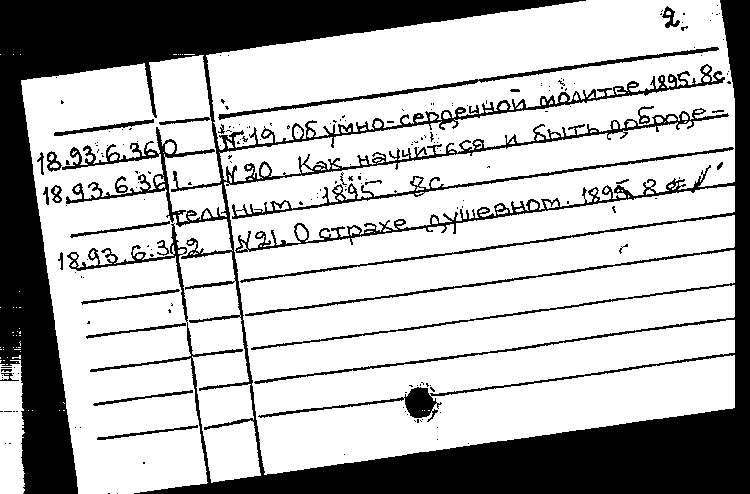 2.
18.93.6.360 N 19. Об умно-сердечной молитве. 1895. 8с.
18.93.6.361. N 20. Как научиться и быть доброде-
тельным. 1895. 8с
18.93.6.362 N 21. О страхе душевном. 1895 8 с